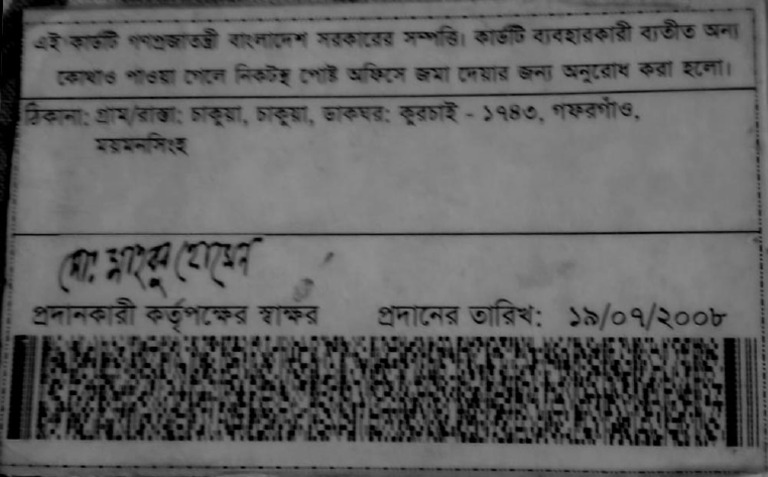 এই কার্ডটি গণপ্রজাতন্ত্রী বাংলাদেশ সরকারের সম্পত্তি। কার্ডটি ব্যবহারকারী ব্যতীত অন্য
কোথাও পাওয়া গেলে নিকটস্থ পোষ্ট অফিসে জমা দেয়ার জন্য অনুরোধ করা হলো।
ঠিকানা: গ্রাম/রাস্তা: চাকুয়া, চাকুয়া, ডাকঘর: কুরচাই - ১৭৪৩, গফরগাঁও,
ময়মনসিংহ
মো: হোসেন
প্রদানকারী কর্তৃপক্ষের স্বাক্ষর প্রদানের তারিখ: ১৯/০৭/২০০৮